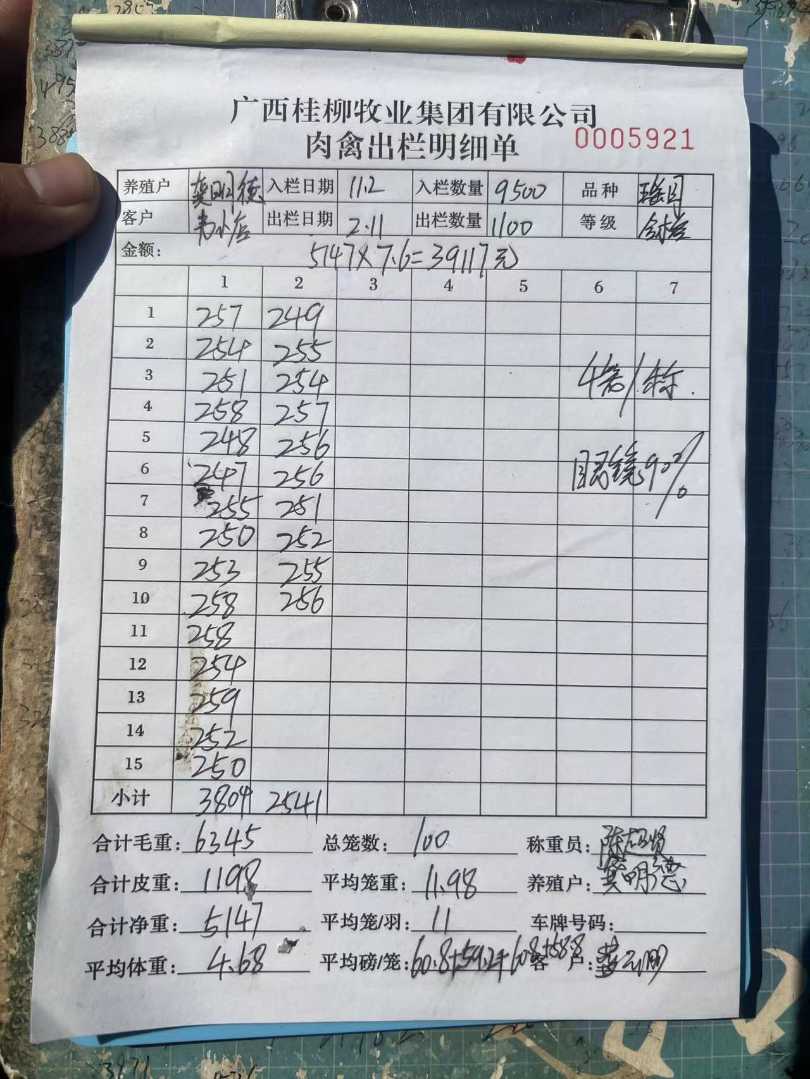 广西桂柳牧业集团有限公司
肉禽出栏明细单 0005921
养殖户 龚明德 入栏日期 11.2 入栏数量 9500 品种
客户 出栏日期 2.11 出栏数量 1100 等级
金额： 5147×7.6=39117元
1 2 3 4 5 6 7
1 257 249
2 254 255
3 251 254
4 258 257
5 248 256
6 247 256
7 255 251
8 250 252
9 253 255
10 258 256
11 258
12 254
13 259
14 252
15 250
小计 3804 2541
90%
合计毛重：6345 总笼数：100 称重员：
合计皮重：1198 平均笼重：11.98 养殖户：龚明德
合计净重：5147 平均笼/羽：11 车牌号码：
平均体重：4.68 平均磅/笼：60.8+59.2+60.8+58.8 客户：